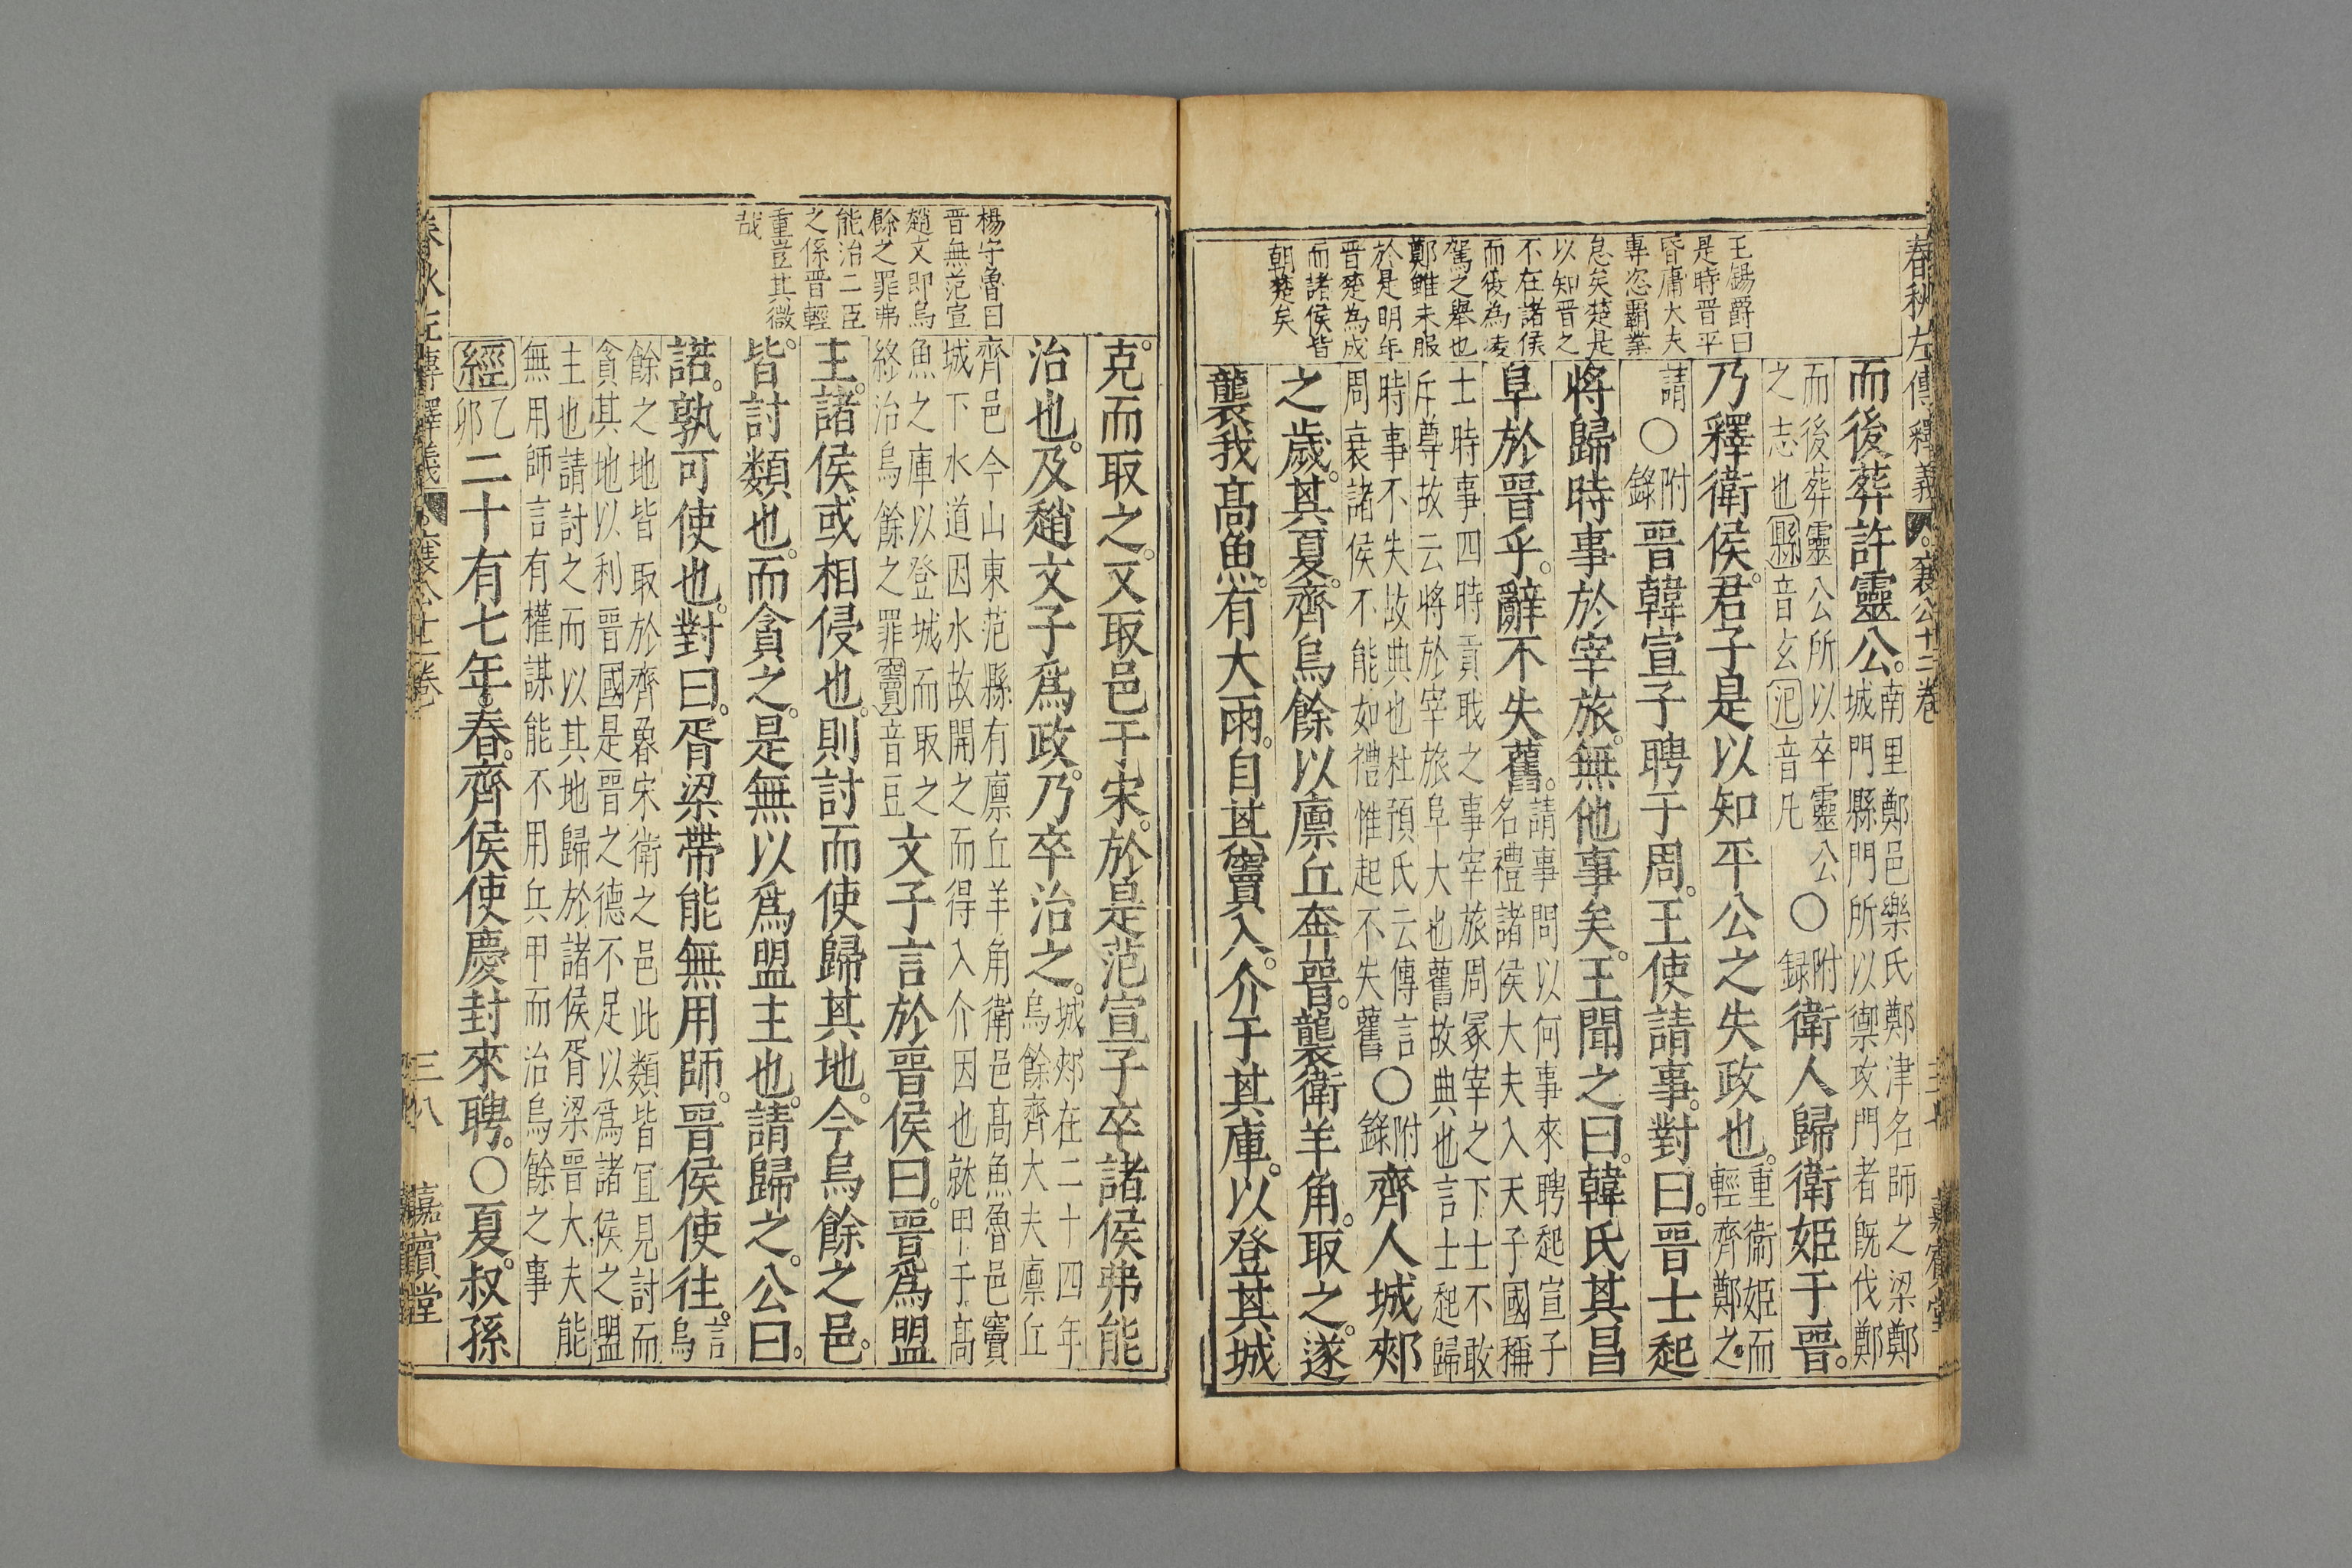 春秋左傳釋義 襄公十二卷 嘉賓堂
王錫爵曰
是時晉平
昏庸大夫
專恣霸業
怠矣楚是
以知晉之
不在諸侯
而後為凌
駕之舉也
鄭雖未服
於是明年
晉楚為成
而諸侯皆
朝楚矣
而後葬許靈公。南里鄭邑樂氏鄭津名師之梁鄭城門縣門所以禦攻門者既伐鄭
而後葬靈公所以卒靈公之志也縣音玄氾音凡〇附録衛人歸衛姬于晉。
乃釋衛侯。君子是以知平公之失政也。重衛姬而輕齊鄭之
請〇附錄晉韓宣子聘于周。王使請事。對曰。晉士起
將歸時事於宰旅。無他事矣。王聞之曰。韓氏其昌
阜於晉乎。辭不失舊。請事問以何事來聘起宣子名禮諸侯大夫入天子國稱
士時事四時貢職之事宰旅周冢宰之下士不敢斥尊故云將於宰旅阜大也舊故典也言士起歸
時事不失故典也杜預氏云傳言周衰諸侯不能如禮惟起不失舊〇附錄齊人城郟
之歲。其夏。齊烏餘以廩丘奔晉。襲衛羊角。取之。遂
襲我高魚。有大雨。自其竇入。介于其庫。以登其城
楊守魯曰
晉無范宣
趙文即烏
餘之罪弗
能治二臣
之係晉輕
重豈其微
哉
克而取之。又取邑于宋。於是范宣子卒諸侯弗能
治也。及趙文子為政。乃卒治之。城郟在二十四年烏餘齊大夫廩丘
齊邑今山東范縣有廩丘羊角衛邑高魚魯邑竇城下水道因水故開之而得入介因也就甲于高
魚之庫以登城而取之終治烏餘之罪竇音豆文子言於晉侯曰。晉為盟
主。諸侯或相侵也。則討而使歸其地。今烏餘之邑。
皆討類也。而貪之。是無以為盟主也。請歸之。公曰。
諾。孰可使也。對曰。胥梁帶能無用師。晉侯使往。言烏
餘之地皆取於齊魯宋衛之邑此類皆宜見討而貪其地以利晉國是晉之德不足以為諸侯之盟
主也請討之而以其地歸於諸侯胥梁晉大夫能無用師言有權謀能不用兵甲而治烏餘之事
經乙卯二十有七年。春。齊侯使慶封來聘。〇夏。叔孫
春秋左傳釋義 襄公十二卷 三八 嘉賓堂